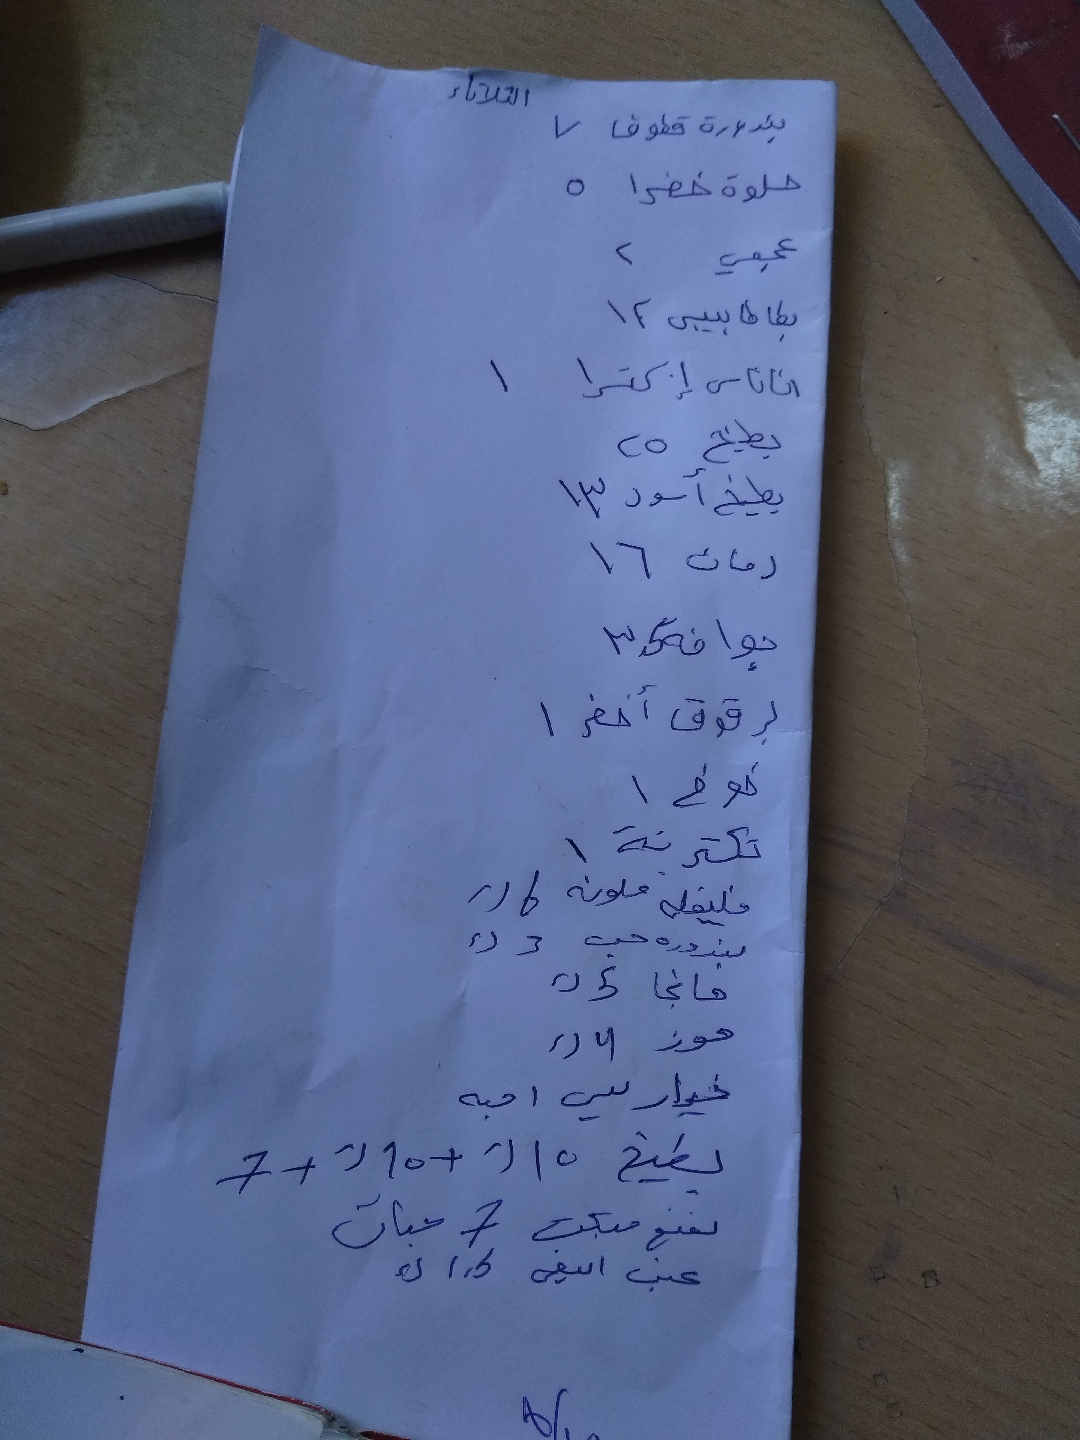 الثلاثاء
بندورة قطوف ٧
حلوة خضرا ٥
عجمي ٢
بطاطا بيبي ١٢
اناناس إكسترا ١
بطيخ ٢٥
بطيخ أسود ١٣
رمان ١٦
جوافة ٣,5
برقوق أخضر ١
خوخ ١
نكترينة ١
فليفله ملونه 6 ك
بندوره حب 3 ك
مانجا 5 ك
موز 4 ك
خيار بيبي ١ حبه
بطيخ ١٥ ك + ٩٥ ك + 7
نعنع مبكت 7 حبات
عنب 1,5 ك